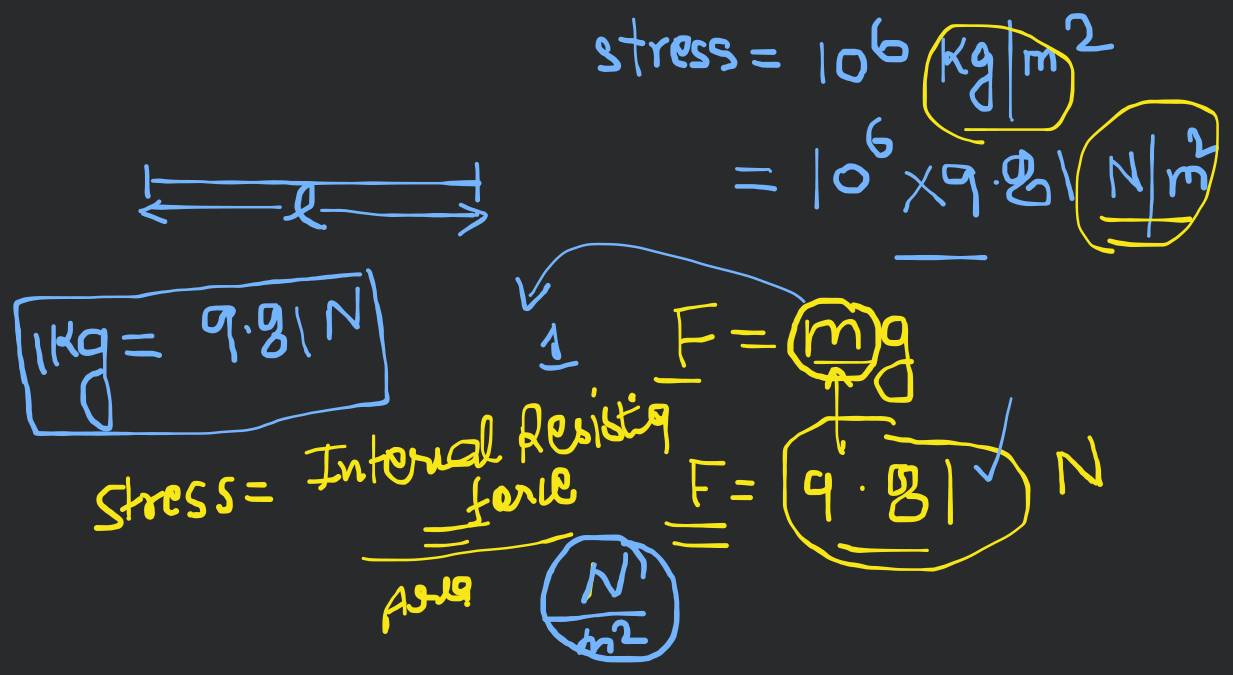 stress = 10⁶ kg/m²
= 10⁶ × 9.81 N/m²
l
1kg = 9.81 N
1
F = mg
Stress = Internal Resisting force / Area
N/m²
F = 9.81 N